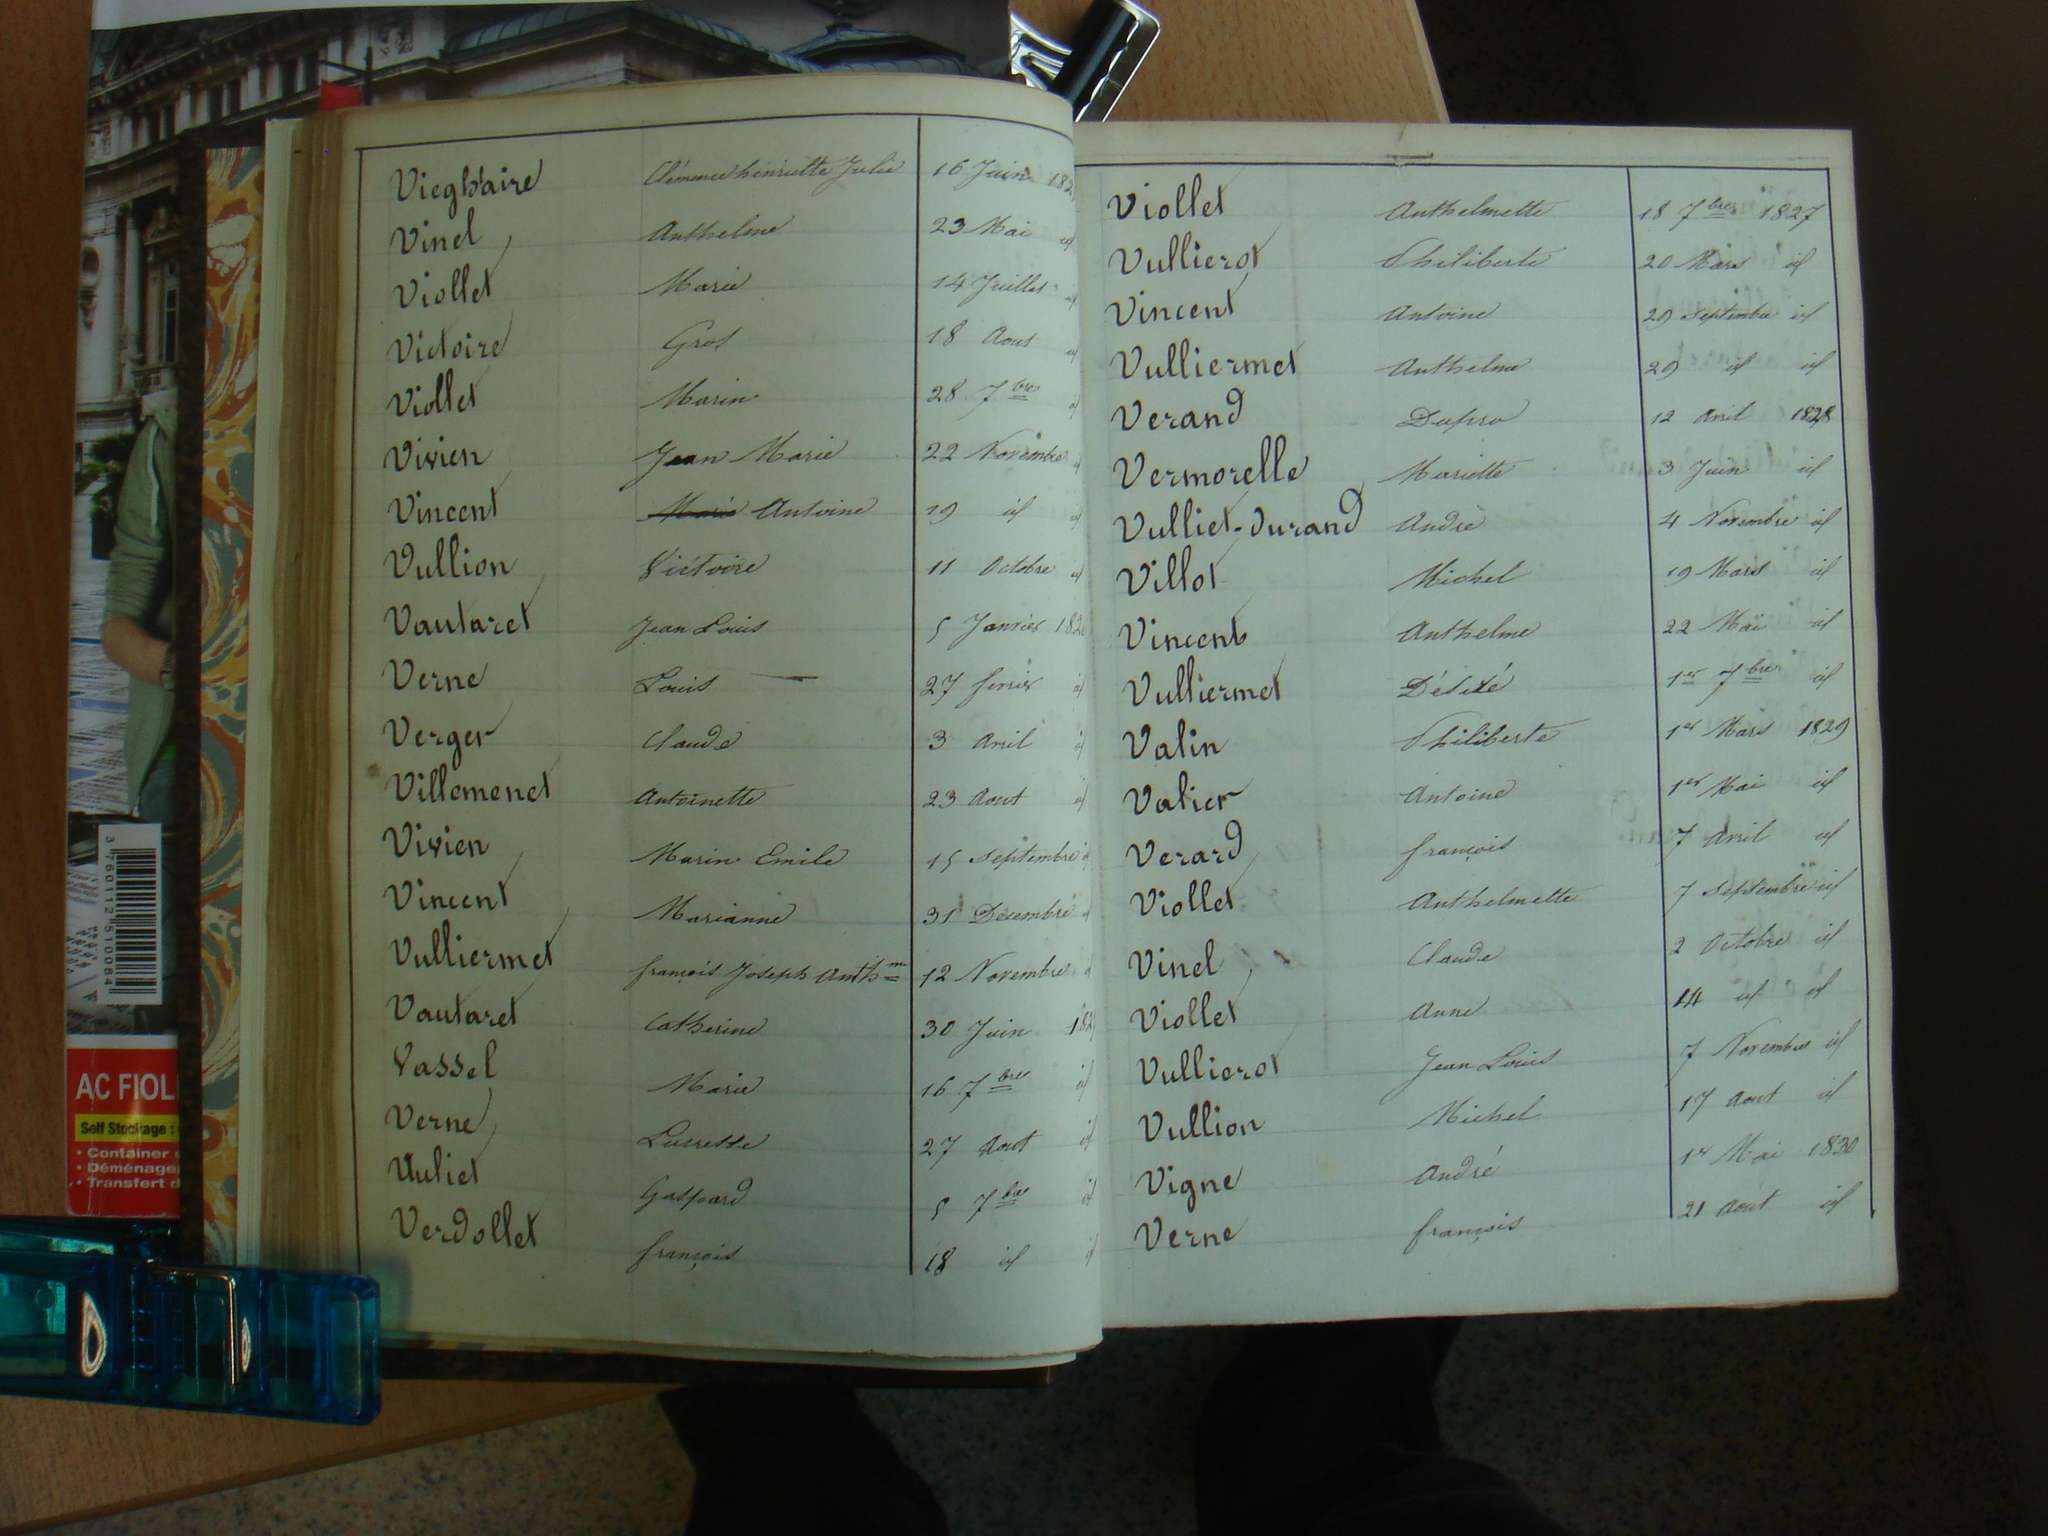 Vieghaire Clémence henriette Julie 16 Juin
Vinel Anthelme 23 Mai id
Viollet Marie 14 Juillet id
Victoire Gros 18 Aout id
Viollet Marin 28 7bre id
Vivien Jean Marie 22 Novembre id
Vincent Marie Antoine 19 id id
Vullion Victoire 11 Octobre id
Vautaret Jean Louis 5 Janvier
Verne Louis 27 fevrier id
Verger Claude 3 Avril id
Villemenet Antoinette 23 Aout id
Vivien Marin Emile 15 Septembre id
Vincent Marianne 31 Decembre
Vulliermet françois Joseph Anthme 12 Novembre
Vautaret Catherine 30 Juin
Vassel Marie 16 7bre id
Verne Lucresse 27 Aout id
Vuliet Gaspard 5 7bre id
Verdollet françois 18 id id
Viollet Anthelmette 18 7bre 1827
Vullierot Philiberte 20 Mars id
Vincent Antoine 29 Septembre id
Vulliermet Anthelme 29 id id
Verand Dupra 12 Avril 1828
Vermorelle Mariette 3 Juin id
Vulliet-Durand André 4 Novembre id
Villot Michel 19 Mars id
Vincent Anthelme 22 Mai id
Vulliermet Désiré 1er 7bre id
Valin Philiberte 1er Mars 1829
Valier Antoine 1er Mai id
Verard françois 7 Avril id
Viollet Anthelmette 7 Septembre id
Vinel Claude 2 Octobre id
Viollet Anne 14 id id
Vullierot Jean Louis 7 Novembre id
Vullion Michel 17 Aout id
Vigne André 1er Mai 1830
Verne françois 21 Aout id
3 760112 510084
AC FIOL
Self Stockage :
• Container
• Déménage
• Transfert d